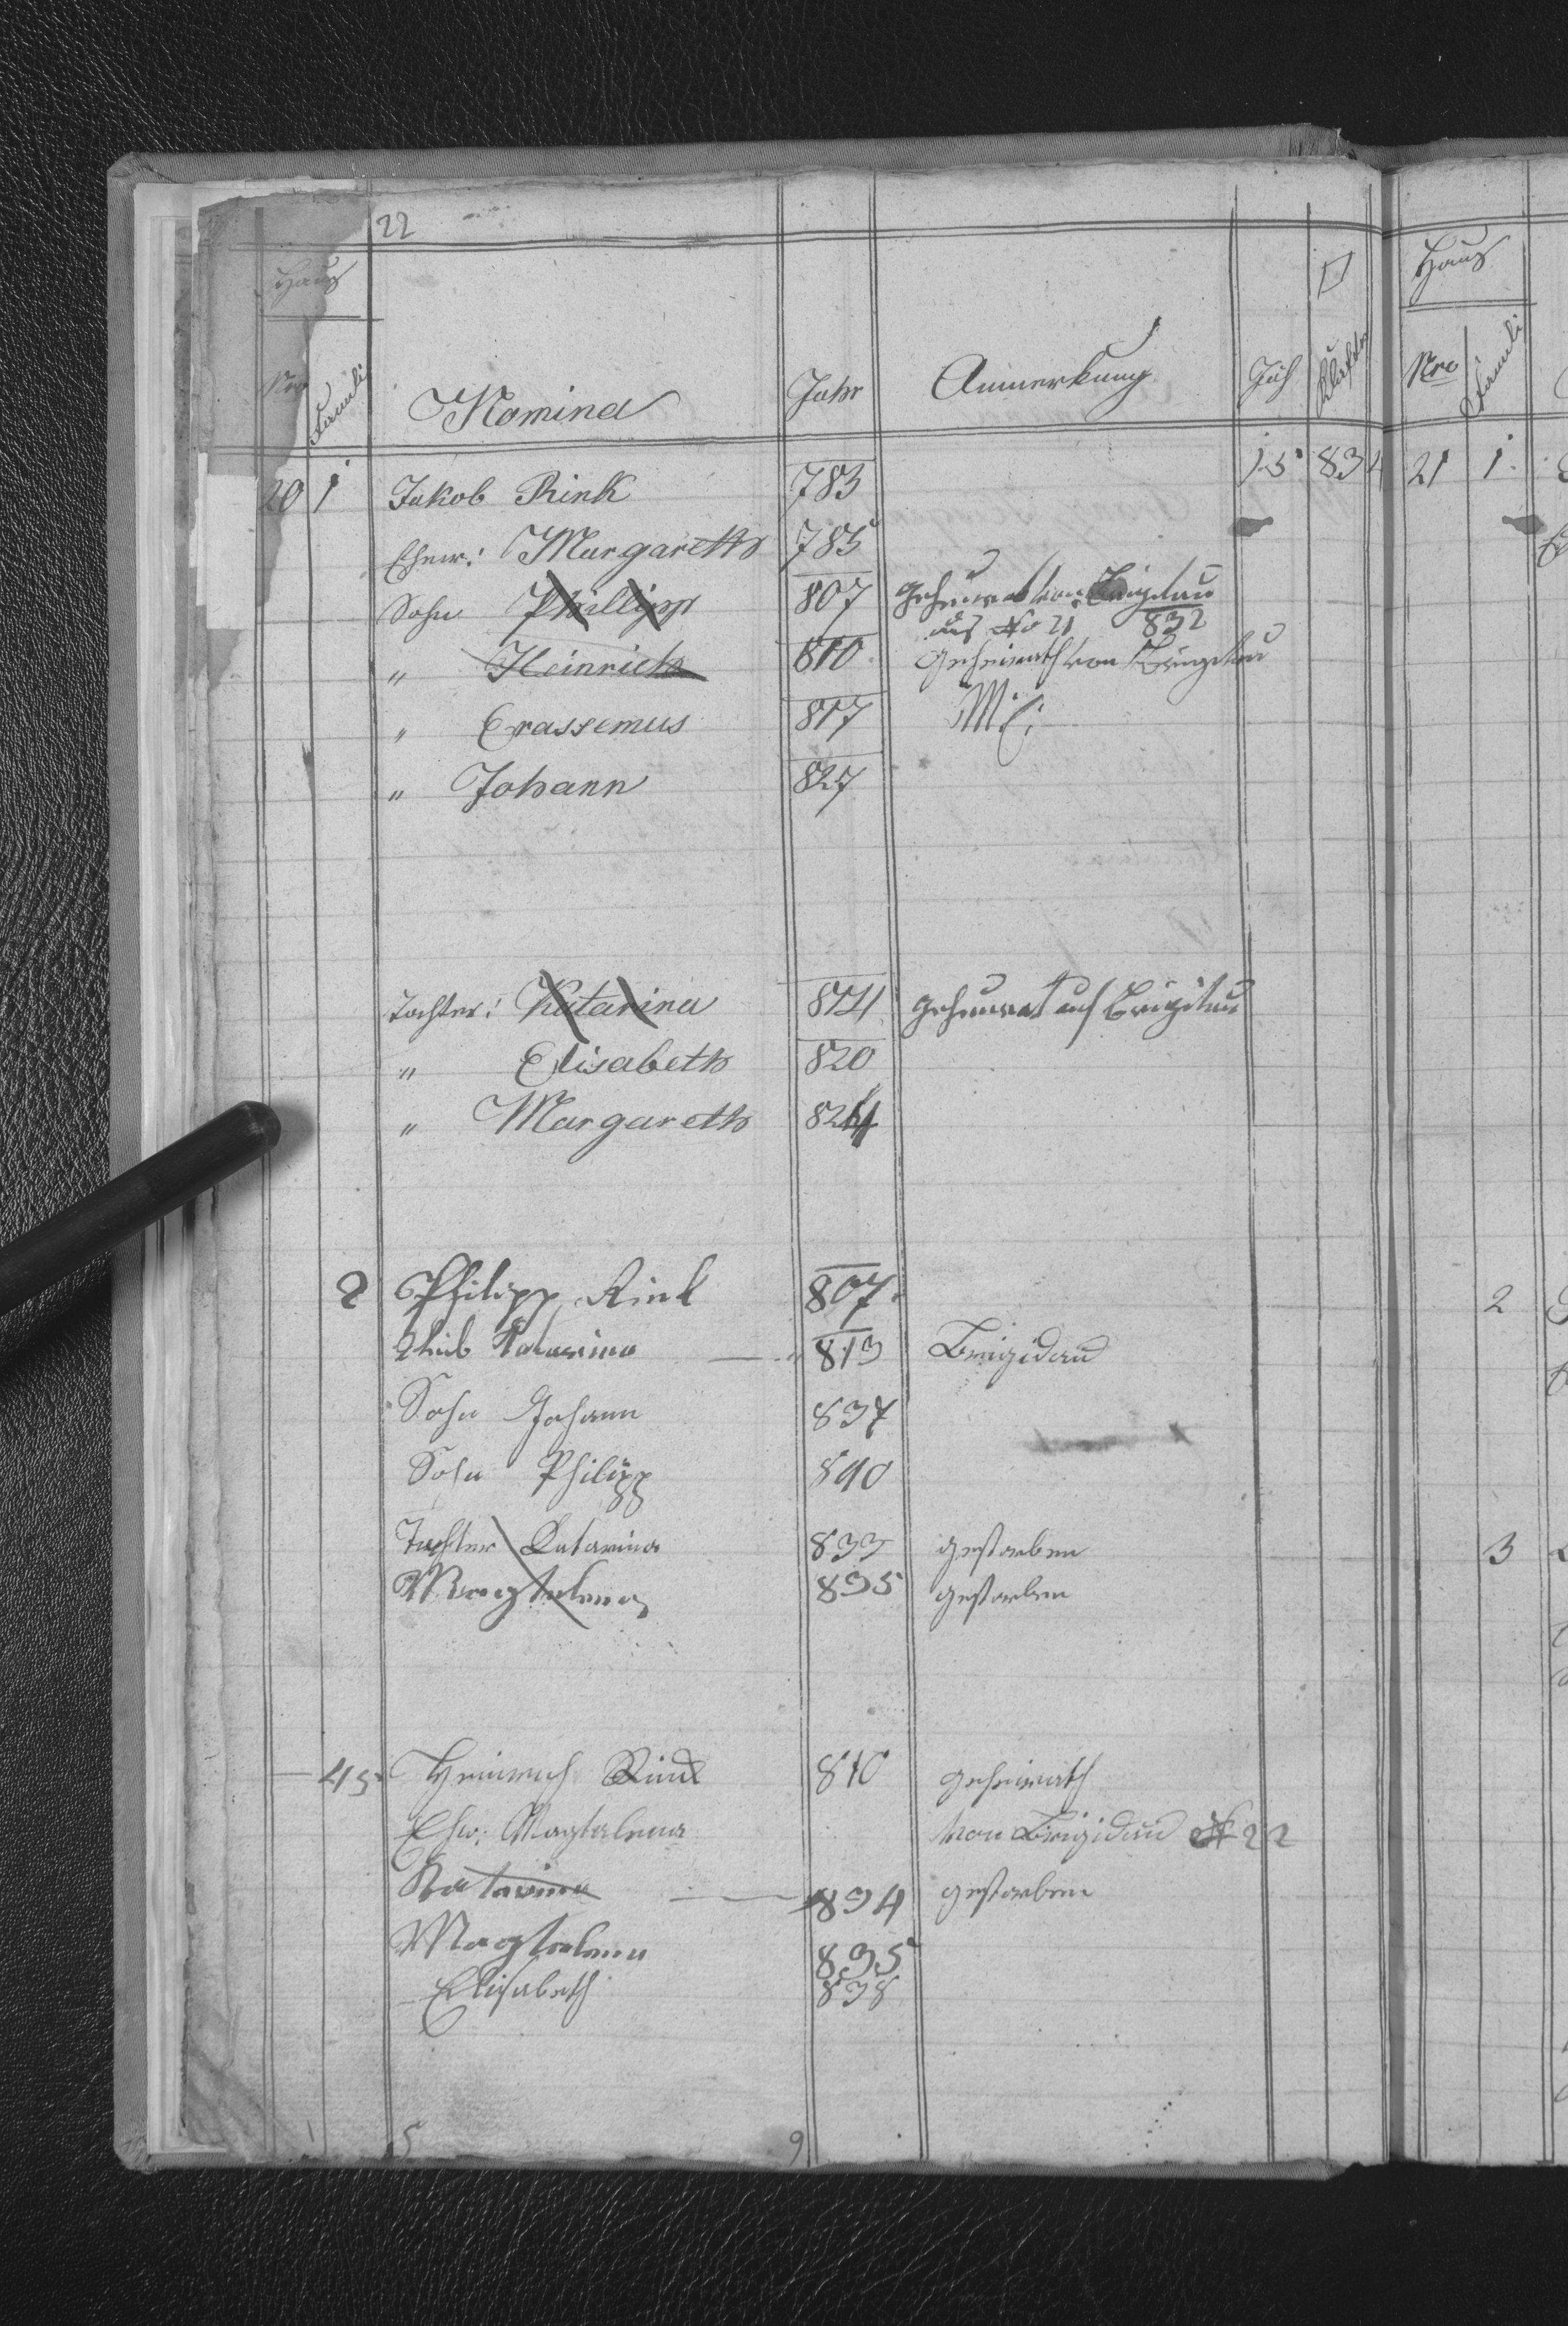 22
Haus
Nro Famili Nomina Jahr Anmerkung Juh □ Klafter
20 1 Jakob Rink 783 15 834
Ehew: Margareth 785
Sohn Phillipp 807 geheurat von Brigitau
aus No 21 832
" Heinrich 810 geheirath von Brigitau
" Erassemus 817 Mil:
" Johann 827
Tochter: Katarina 814 geheurat auf Brigitau
" Elisabeth 820
" Margareth 824
2 Philipp Rink 807.
Weib Katarina 813 Brigidau
Sohn Johann 837
Sohn Philipp 840
Tochter Katarina 833 gestorben
Magtalena 835 gestorben
45 Heinrich Rink 810 geheirath
Ehw: Magtalena von Brigidau No 22
Katarina 834 gestorben
Magtalena 835
Elisabeth 838
5 9
Haus
Nro Famili
21 1
2
3